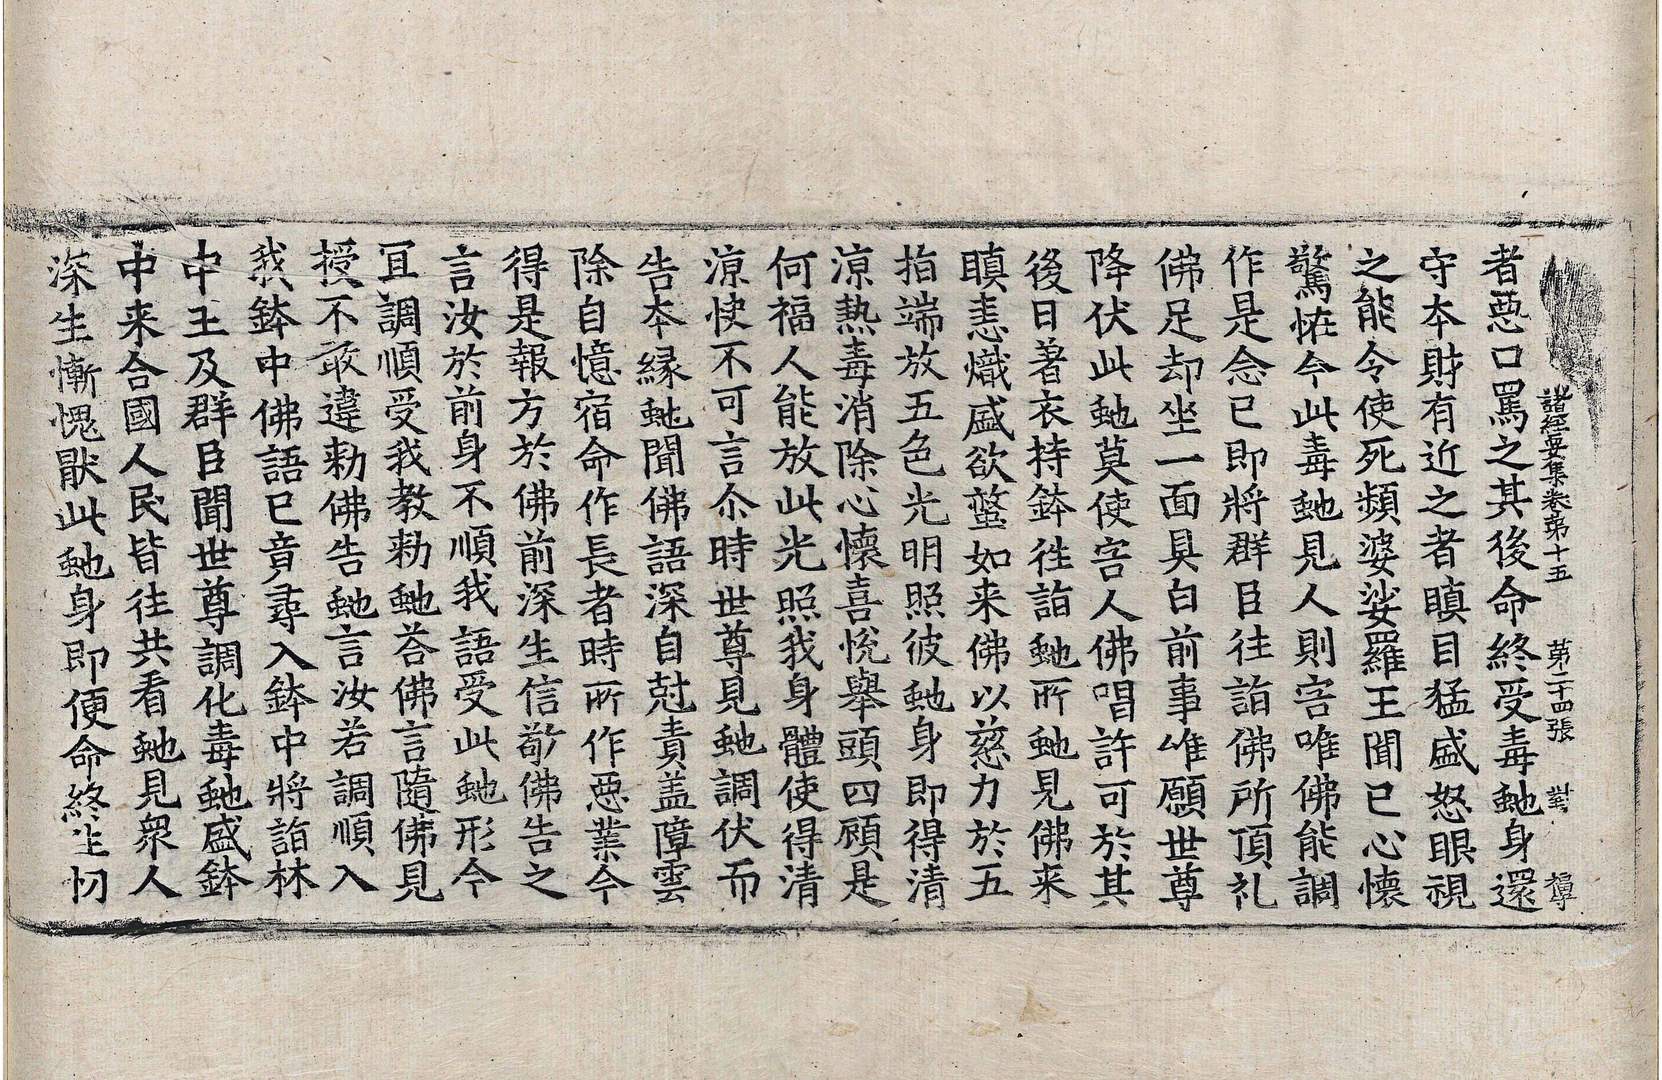 諸經要集卷第十五 第二十四張 對
者惡口罵之其後命終受毒虵身還
守本財有近之者瞋目猛盛怒眼視
之能令使死頻婆娑羅王聞已心懷
驚恠今此毒虵見人則害唯佛能調
作是念已即將群臣往詣佛所頂礼
佛足却坐一面具白前事唯願世尊
降伏此虵莫使害人佛唱許可於其
後日著衣持鉢徃詣虵所虵見佛來
瞋恚熾盛欲螫如来佛以慈力於五
指端放五色光明照彼虵身即得清
涼熱毒消除心懷喜悅舉頭四顧是
何福人能放此光照我身體使得清
涼快不可言尒時世尊見虵調伏而
告本緣虵聞佛語深自尅責盖障雲
除自憶宿命作長者時所作惡業今
得是報方於佛前深生信敬佛告之
言汝於前身不順我語受此虵形今
冝調順受我教勑虵荅佛言隨佛見
授不敢違勑佛告虵言汝若調順入
我鉢中佛語已竟尋入鉢中將詣林
中王及群臣聞世尊調化毒虵盛鉢
中来合國人民皆往共看虵見衆人
深生慚愧猒此虵身即便命終生忉